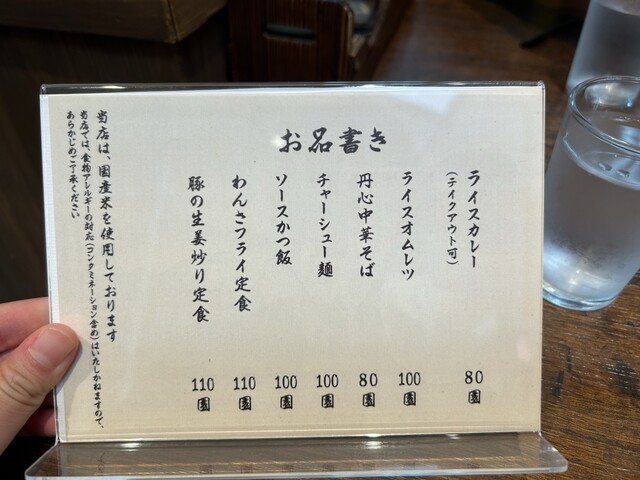 お品書き
ライスカレー
(テイクアウト可)
80圓
ライスオムレツ
100圓
丹心中華そば
80圓
チャーシュー麺
100圓
ソースかつ飯
100圓
わんさフライ定食
110圓
豚の生姜炒り定食
110圓
当店は、国産米を使用しております
当店では、食物アレルギーの対応(コンタミネーション含め)はいたしかねますので、
あらかじめご了承ください